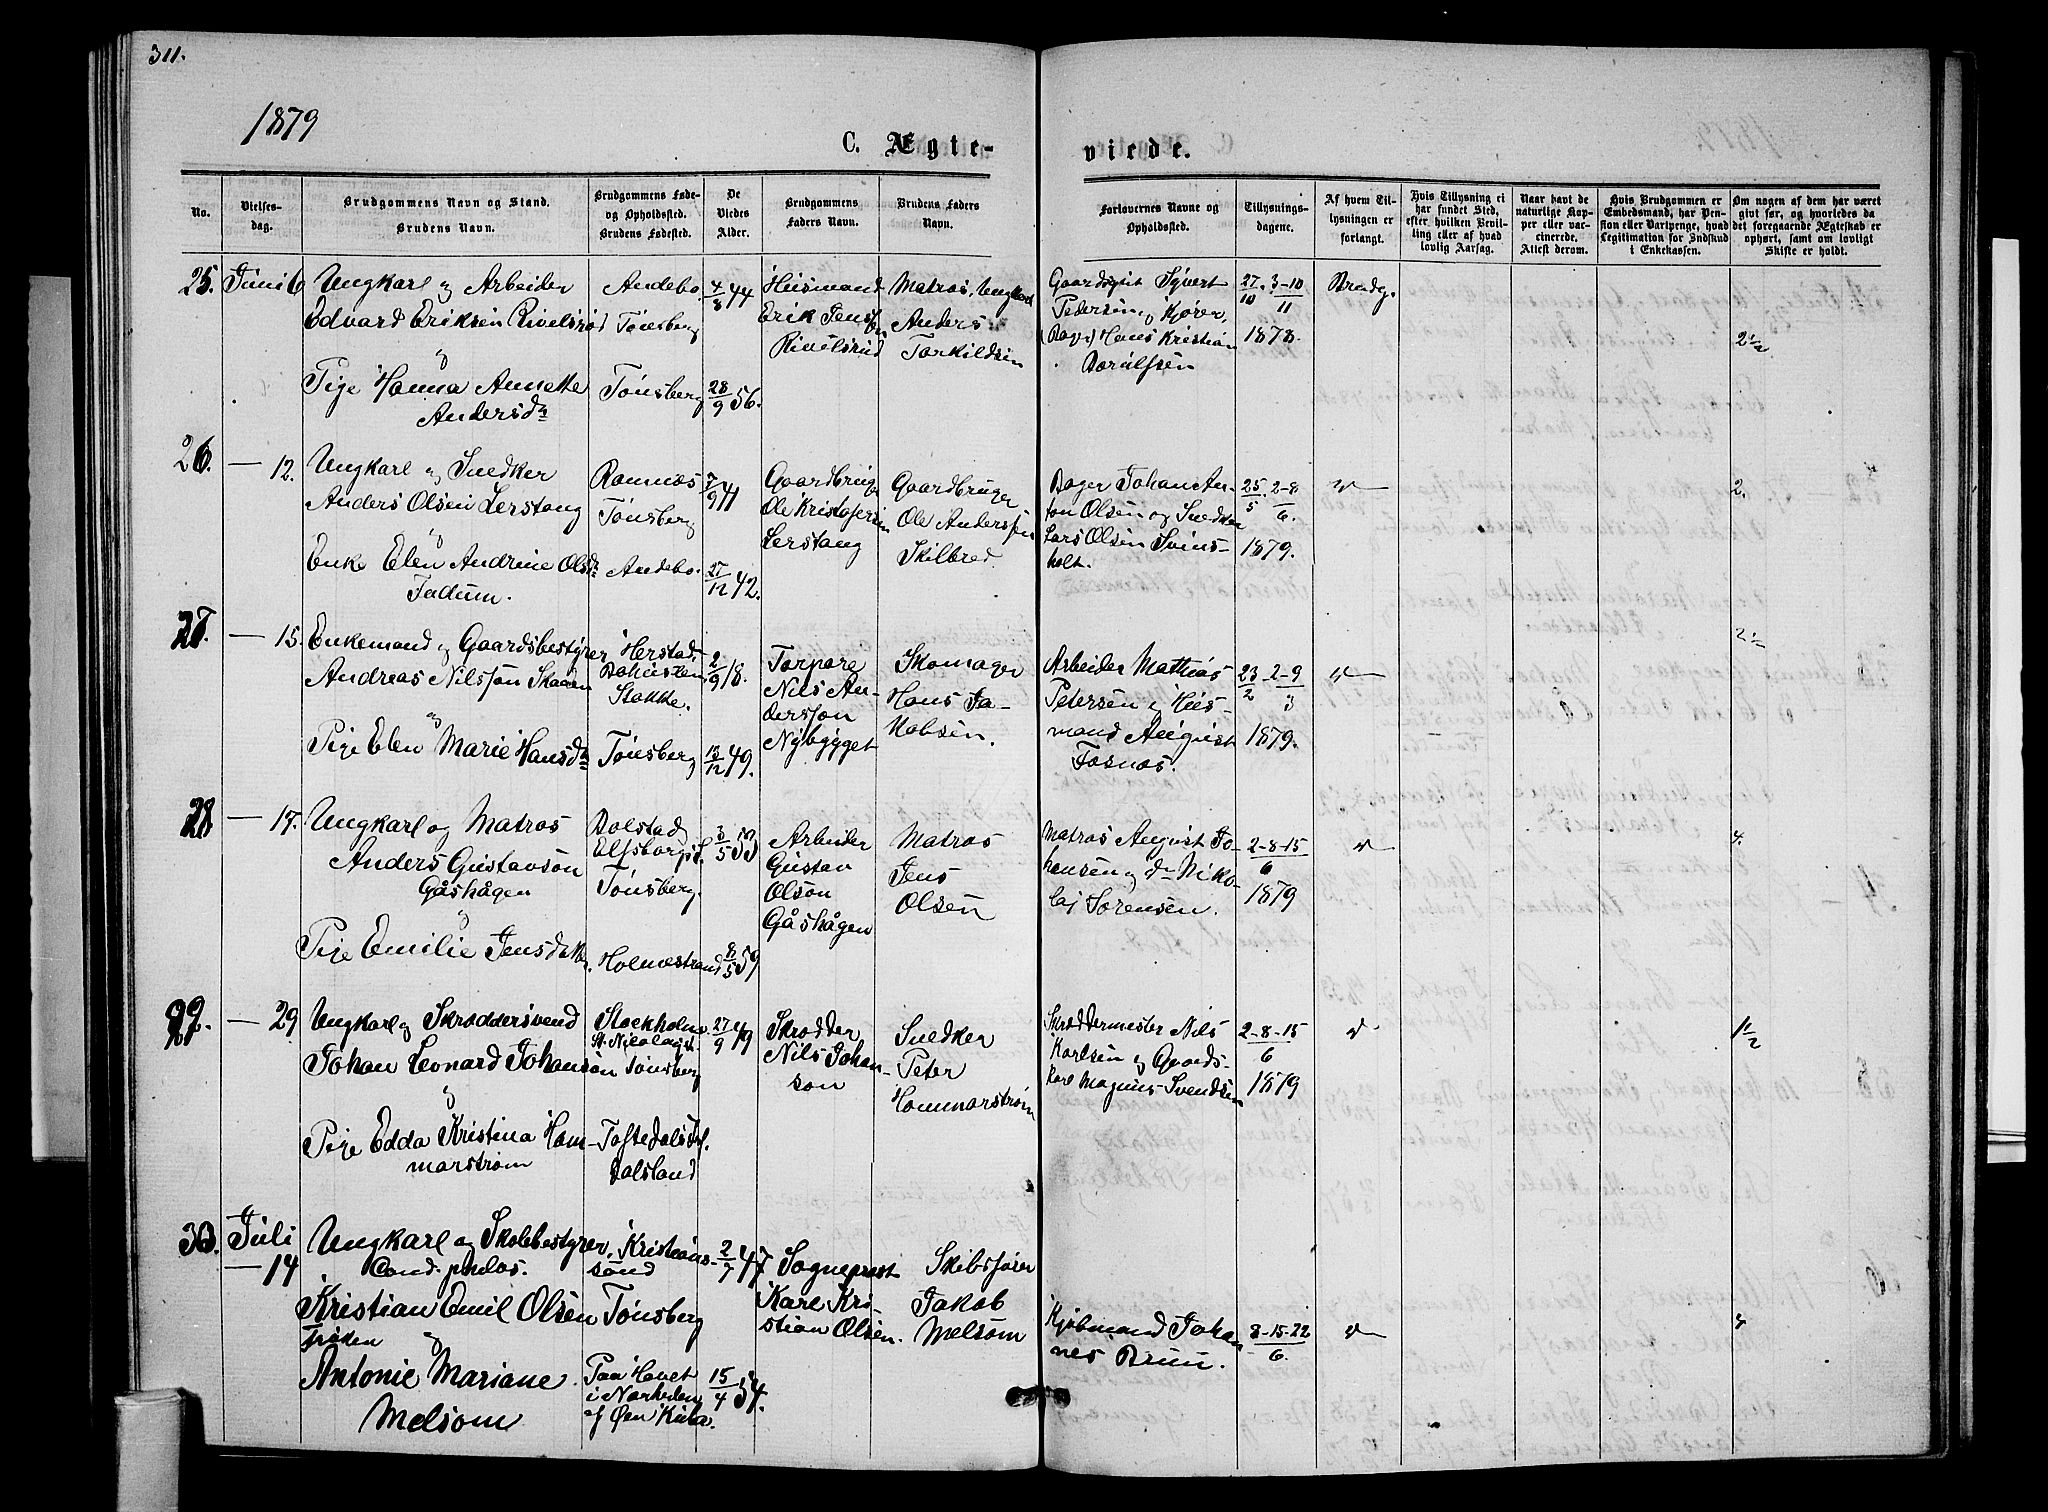 311.
1879
C. Ægte-
viede.
No.
Vielses-
dag.
Brudgommens Navn og Stand.
Brudens Navn.
Brudgommens Føde-
og Opholdssted.
Brudens Fødested.
De
Viedes
Alder.
Brudgommens
Faders Navn.
Brudens Faders
Navn.
Forlovernes Navne og
Opholdssted.
Tillysnings-
dagene.
Af hvem Til-
lysningen er
forlangt.
Hvis Tillysning ei
har fundet Sted,
efter hvilken Bevil-
ling eller af hvad
lovlig Aarsag.
Naar havt de
naturlige Kop-
per eller vac-
cinerede.
Attest derom.
Hvis Brudgommen er
Embedsmand, har Pen-
sion eller Vartpenge, hvad
Legitimation for Indskud
i Enkekassen.
Om nogen af dem har været
givt før, og hvorledes da
det foregaaende Ægteskab er
ophørt, samt om lovligt
Skifte er holdt.
25.
Juni 6
Ungkarl og Arbeider
Edvard Eriksen Rivelsrød
og
Pige Hanna Annette
Andersdr
Andebo
Tønsberg
Tønsberg
4/8 44
28/9 56.
Husmand
Erik Jensen
Rivelsrud
Matros, Ungkarl
Anders
Torkildsen
Sjvert
Pedersen og
Hans Kristian
27/10. 3-10/11
1878.
Brudg.
2 1/2
26.
— 12.
Ungkarl og Snedker
Anders Olsen Lerstang
og
Enke Elen Andrine Olsdr
Fadum.
Ramnæs
Tønsberg
Andebo.
7/9 41
27/12 42.
Gaardbruger
Ole Kristofersen
Lerstang
Gaardbruger
Ole Anderssen
Skilbred.
Bager Johan An-
ton Olsen og Snedker
Lars Olsen Svins-
holt.
25/5. 2-8/6.
1879.
2.
27.
— 15.
Enkemand og Gaardsbestyrer
Andreas Nilsson Skaren
og
Pige Elen Marie Hansdr
Herstad,
Bohuslen
Stokke.
Tønsberg
2/9 18.
13/12 49.
Torpare
Nils An-
dersson
Nybygget
Skomager
Hans Ja-
kobsen.
Arbeider Mathias
Petersen og Hus-
mand August
Fosnæs.
23/2 - 2-9/3
1879.
28
— 17.
Ungkarl og Matros
Anders Gustavson
Gåshågen
og
Pige Emilie
Dalstad
Elfsborgs L.
Tønsberg.
Holmestrand
3/5 53
8/5 59
Arbeider
Gustav
Olson
Gåshågen
Matros
Jens
Olsen
Matros August Jo-
hansen og do Niko-
laj Sørensen.
2-8-15/6
1879
4.
29.
— 29
Ungkarl og Skræddersvend
Johan Leonard Johanson
og
Pige Edda Kristina Ham-
marstrøm
Stockholm
Tønsberg
Dalsland
27/9 49
Skrædder
Nils Johan-
son
Snedker
Peter
Hammarstrøm
Skræddermester Nils
Karlsen og Gaards-
karl Magnus Svendsen
2-8-15/6
1879
1 1/2
30.
Juli
— 14
Ungkarl og Skolebestyrer,
Cand. philos.
Kristian Emil Olsen
Frøken og
Antonie Mariane
Melsom
Kristians-
sund
Tønsberg
Paa Havet
i Nærheden
af Øen Kuba.
2/7 47
15/4 54.
Sogneprest
Karl Kri-
stian Olsen.
Skibsfører
Jakob
Melsom
Kjøbmand Johan-
nes Bruu.
8-15-22/6.
4